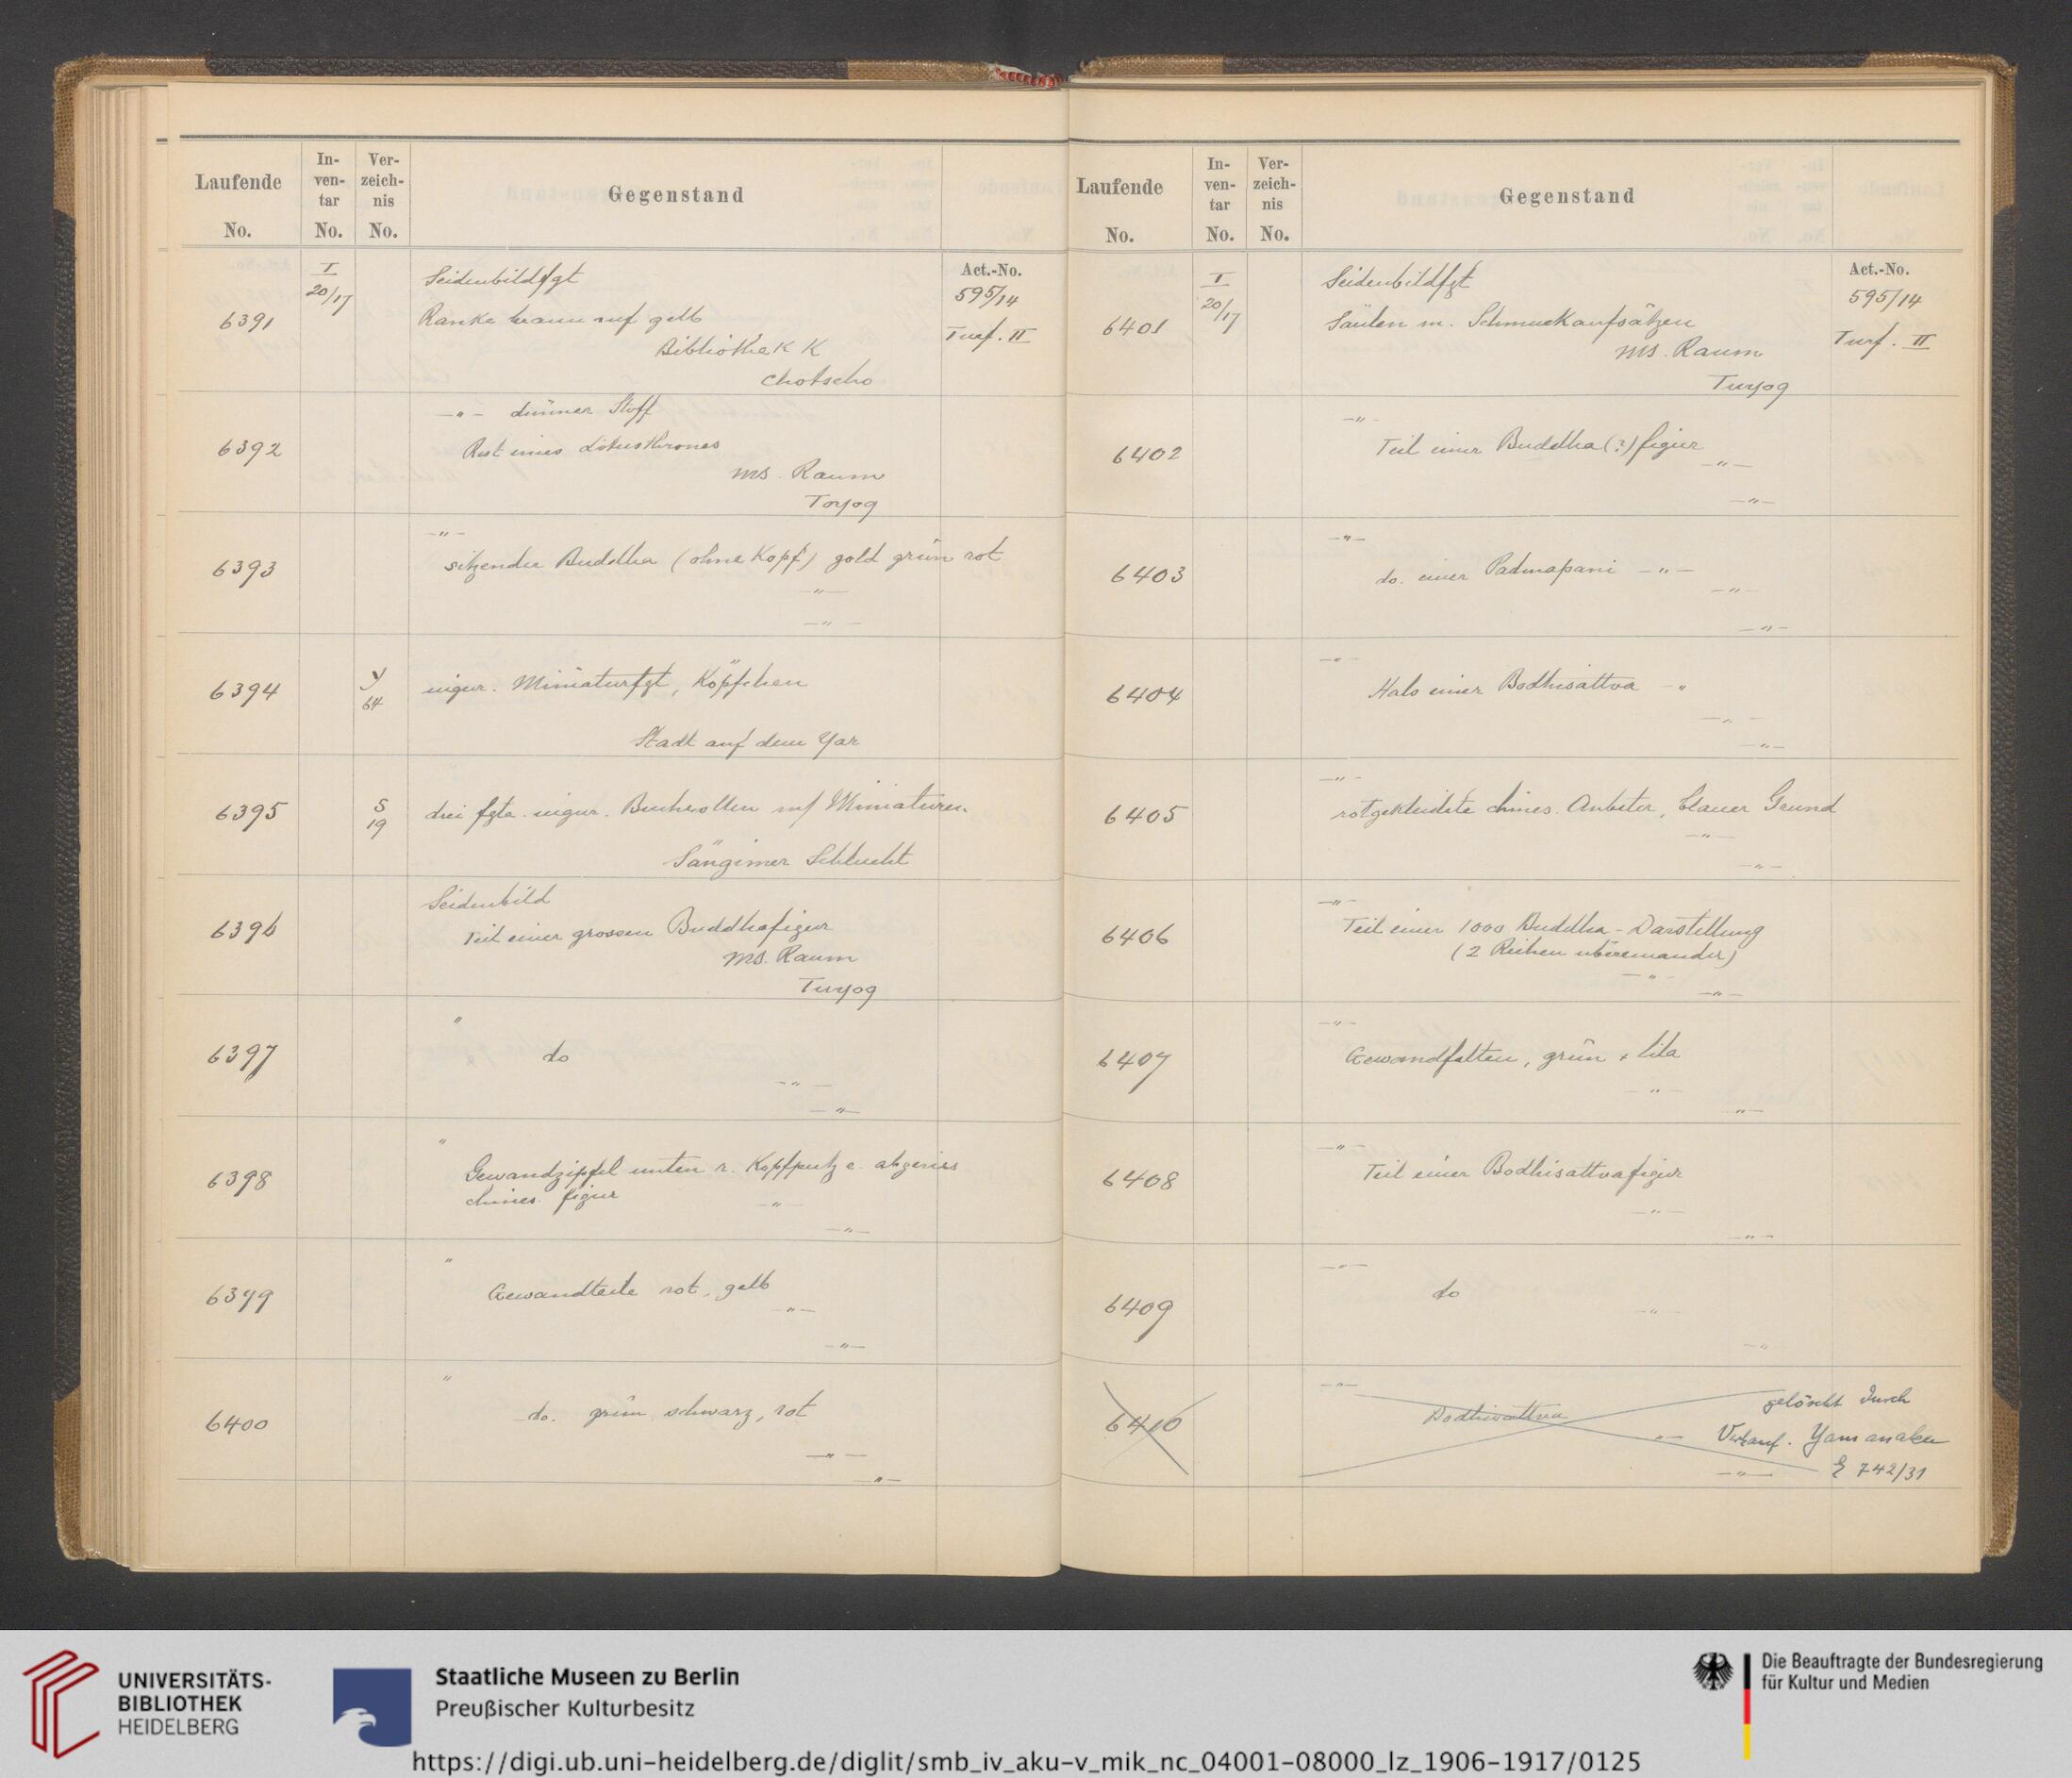 Laufende
No.
In-
ven-
tar
No.
Ver-
zeich-
nis
No.
Gegenstand
6391
I
20/17
Seidenbildfgt
Ranke braun auf gelb
Bibliothek K
Chotscho
Act.-No.
595/14
Turf. II
6392
-"- dünner Stoff
Rest eines Lotusthrones
MS. Raum
Toyog
6393
-"-
sitzender Buddha (ohne Kopf) gold grün rot
-"-
-"-
6394
y
64
uigur. Miniaturfgt, Köpfchen
Stadt auf dem Yar
6395
S
19
drei fgte. uigur. Buchrollen m/ Miniaturen
Sängimer Schlucht
6396
Seidenbild
Teil einer grossen Buddhafigur
MS. Raum
Tuyog
6397
"
do
-"-
-"-
6398
"
Gewandzipfel unten r. Kopfputz e. abgeriss
chines. figur
-"-
-"-
6399
"
Gewandteile rot, gelb
-"-
-"-
6400
"
do. grün, schwarz, rot
-"-
-"-
Laufende
No.
In-
ven-
tar
No.
Ver-
zeich-
nis
No.
Gegenstand
6401
I
20/17
Seidenbildfgt
Säulen m. Schmuckaufsätzen
MS. Raum
Tuyog
Act.-No.
595/14
Turf. II
6402
-"-
Teil einer Buddha(?)figur
-"-
-"-
6403
-"-
do. einer Padmapani -"-
-"-
-"-
6404
-"-
Hals einer Bodhisattva -"
-"-
-"-
6405
-"-
rotgekleidete chines. Anbeter, blauer Grund
-"-
-"-
6406
-"-
Teil einer 1000 Buddha-Darstellung
(2 Reihen übereinander)
-"-
-"-
6407
-"-
Gewandfalten, grün + lila
-"-
-"-
6408
-"-
Teil einer Bodhisattvafigur
-"-
-"-
6409
-"-
do
-"-
-"-
6410
-"-
Bodhisattva
-"-
-"-
gelöscht durch
Verkauf. Yamanaka
E 742/31
UNIVERSITÄTS-
BIBLIOTHEK
HEIDELBERG
Staatliche Museen zu Berlin
Preußischer Kulturbesitz
Die Beauftragte der Bundesregierung
für Kultur und Medien
https://digi.ub.uni-heidelberg.de/diglit/smb_iv_aku-v_mik_nc_04001-08000_lz_1906-1917/0125